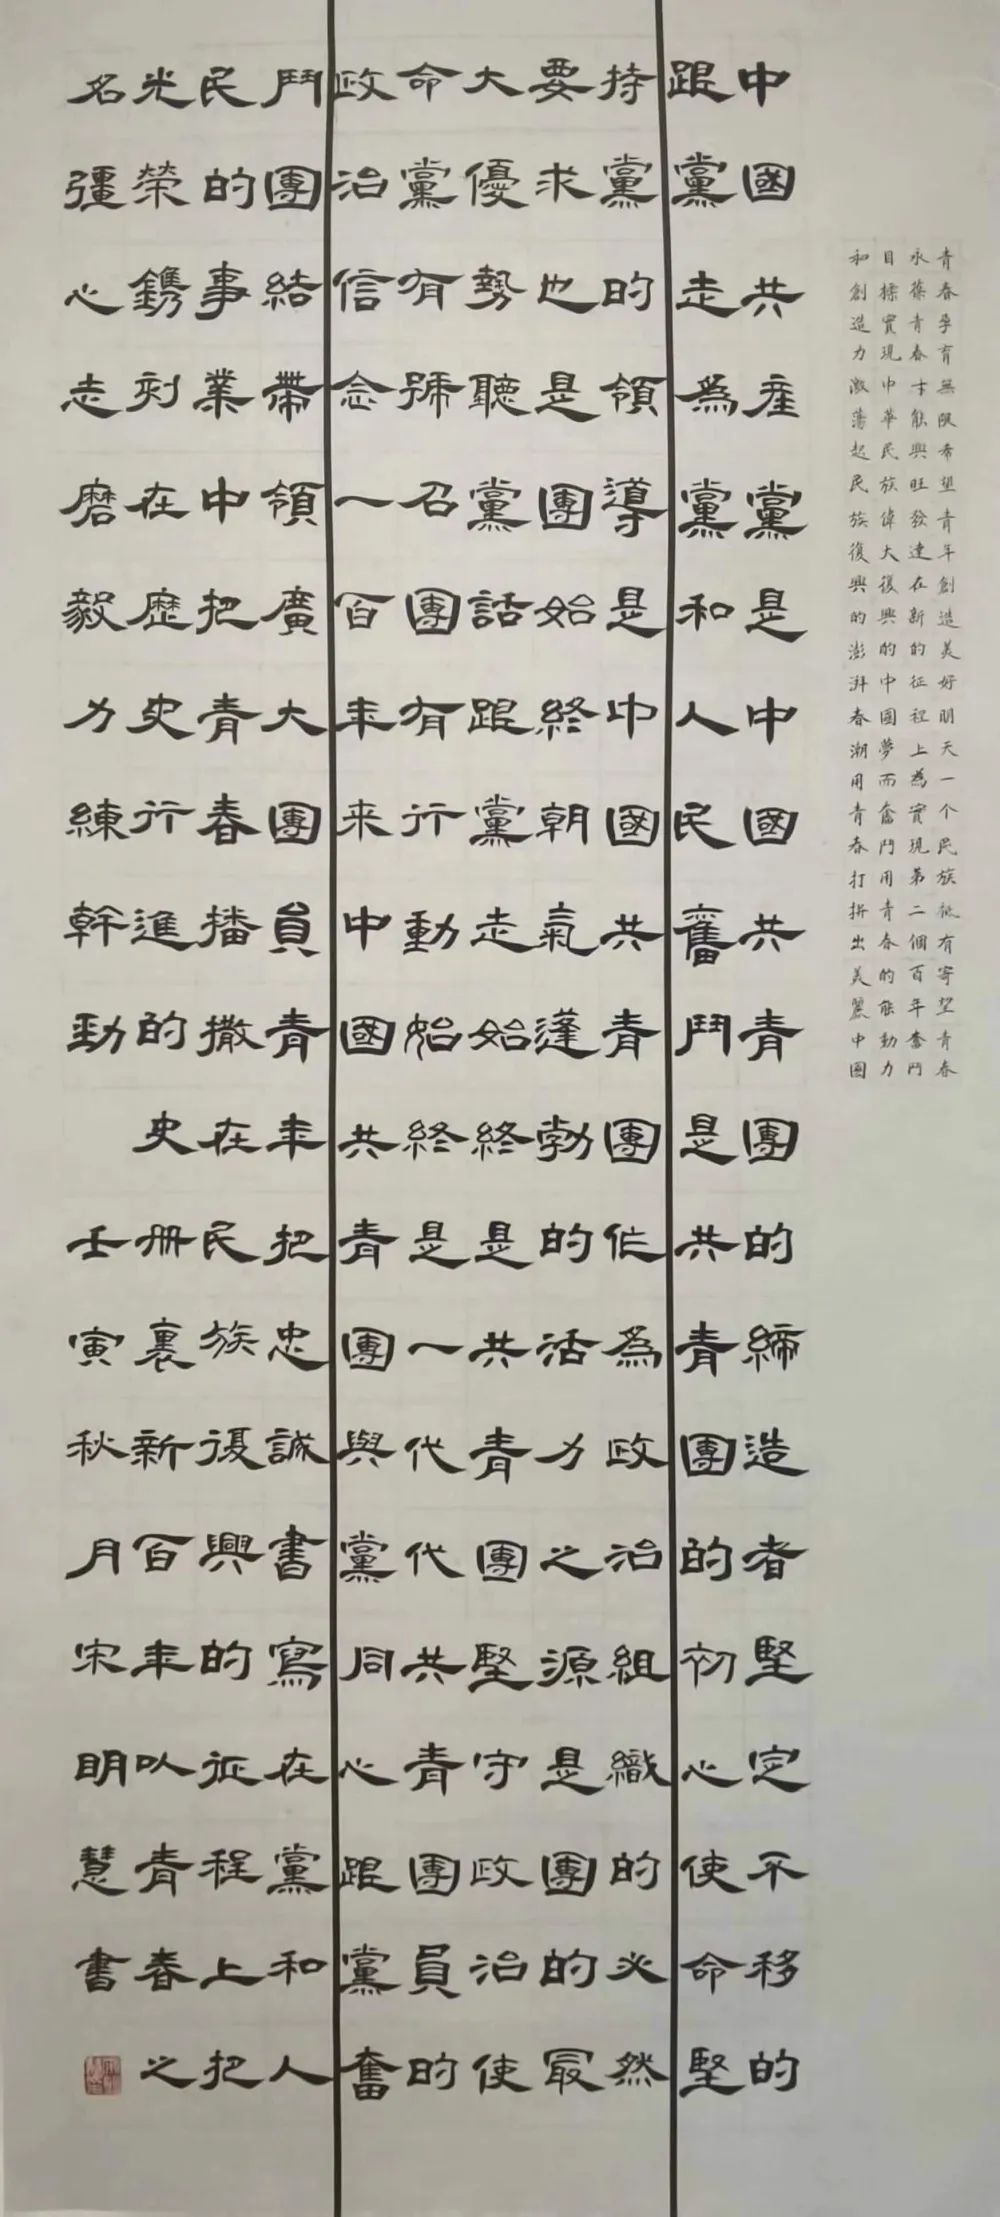 青春孕育無限希望青年創造美好明天一个民族祇有寄望青春
永葆青春才能興旺發達在新的征程上為實現第二個百年奮鬥
目標實現中華民族偉大復興的中國夢而奮鬥用青春的能動力
和創造力激蕩起民族復興的澎湃春潮用青春打拼出美麗中國
中國共產黨是中國共青團的締造者堅定不移的
跟黨走為黨和人民奮鬥是共青團的初心使命堅
持黨的領導是中國共青團作為政治組織的必然
要求也是團始終朝氣蓬勃的活力之源是團的最
大優勢聽黨話跟黨走始終是共青團堅守政治使
命黨有號召團有行動始終是一代代共青團員的
政治信念一百年来中國共青團與黨同心跟黨奮
鬥團結帶領廣大團員青年把忠誠書寫在黨和人
民的事業中把青春播撒在民族復興的征程上把
光榮鐫刻在歷史行進的史册裏新百年以青春之
名彊心志磨毅力練幹勁 壬寅秋月宋明慧書